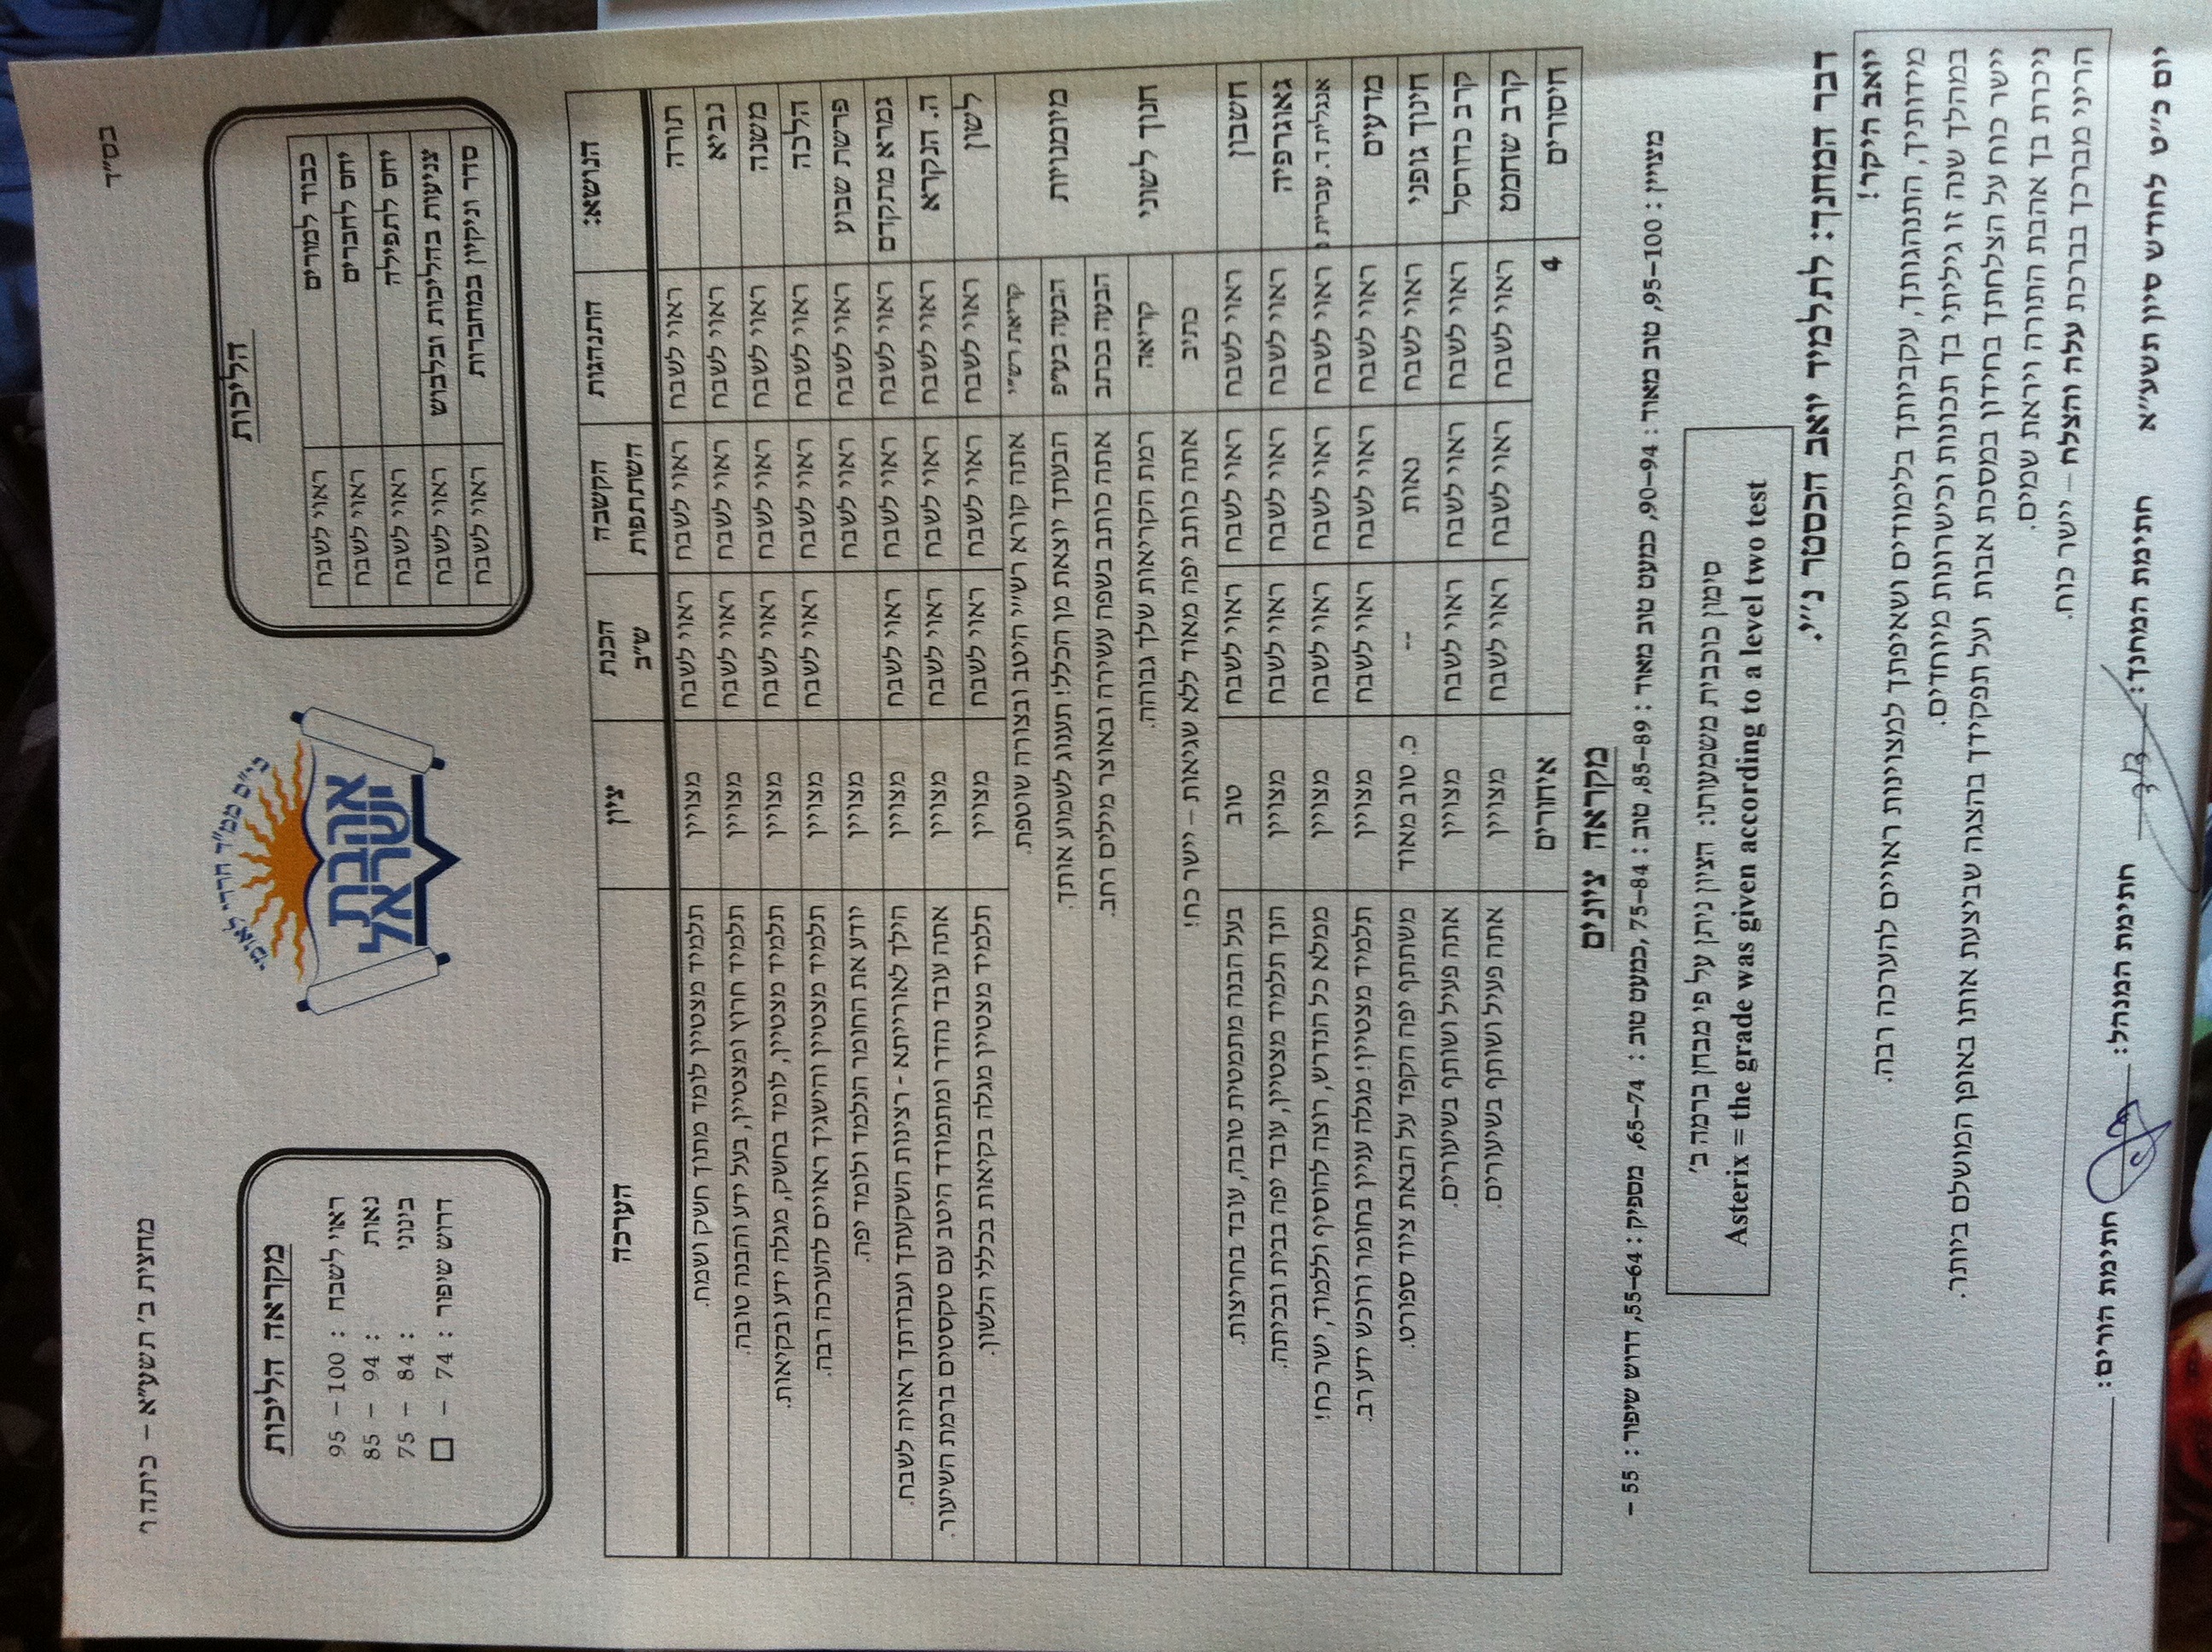 בס״ד
מחצית ב׳ תשע״א – כיתה ו׳
הליכות
כבוד למורים ראוי לשבח
יחס לחברים ראוי לשבח
יחס לתפילה ראוי לשבח
צניעות בהליכות ובלבוש ראוי לשבח
סדר וניקיון במחברות ראוי לשבח
בי״ס ממ״ד חרדי לאומי
אהבת
ישראל
מקראה הליכות
ראוי לשבח : 100 – 95
נאות : 94 – 85
בינוני : 84 – 75
דרוש שיפור : 74 – □
הנושא: התנהגות הקשבה השתתפות הכנת ש״ב ציון הערכה
תורה ראוי לשבח ראוי לשבח ראוי לשבח מצויין תלמיד מצטיין לומד מתוך חשק ושמחה.
נביא ראוי לשבח ראוי לשבח ראוי לשבח מצויין תלמיד חרוץ ומצטיין, בעל ידע והבנה טובה.
משנה ראוי לשבח ראוי לשבח ראוי לשבח מצויין תלמיד מצטיין, לומד בחשק, מגלה ידע ובקיאות.
הלכה ראוי לשבח ראוי לשבח ראוי לשבח מצויין תלמיד מצטיין והישגיך ראויים להערכה רבה.
פרשת שבוע ראוי לשבח ראוי לשבח מצויין יודע את החומר הנלמד ולומד יפה.
גמרא מתקדם ראוי לשבח ראוי לשבח ראוי לשבח מצויין הילך לאורייתא - רצינות השקעתך ועבודתך ראויה לשבח.
ה. הנקרא ראוי לשבח ראוי לשבח ראוי לשבח מצויין אתה עובד נהדר ומתמודד היטב עם טקסטים ברמת השיעור.
לשון ראוי לשבח ראוי לשבח ראוי לשבח מצויין תלמיד מצטיין מגלה בקיאות בכללי הלשון.
מיומנויות קריאת רש״י אתה קורא רש״י היטב ובצורה שוטפת.
הבעה בע״פ הבעתך יוצאת מן הכלל! תענוג לשמוע אותך
הבעה בכתב אתה כותב בשפה עשירה ובאוצר מילים רחב.
חנוך לשוני קריאה רמת הקריאות שלך גבוהה.
כתיב אתה כותב יפה מאוד ללא שגיאות – יישר כח!
חשבון ראוי לשבח ראוי לשבח ראוי לשבח טוב בעל הבנה מתמטית טובה, עובד בחריצות.
גאוגרפיה ראוי לשבח ראוי לשבח ראוי לשבח מצויין הנך תלמיד מצטיין, עובד יפה בבית ובכיתה.
אנגלית ד. עברית ראוי לשבח ראוי לשבח ראוי לשבח מצויין ממלא כל הנדרש, רוצה להוסיף וללמוד, ישר כח!
מדעים ראוי לשבח ראוי לשבח ראוי לשבח מצויין תלמיד מצטיין! מגלה עניין בחומר ורוכש ידע רב.
חינוך גופני ראוי לשבח נאות -- כ. טוב מאוד משתתף יפה הקפד על הבאת ציוד ספורט.
קרב כדורסל ראוי לשבח ראוי לשבח ראוי לשבח מצויין אתה פעיל ושותף בשיעורים.
קרב שחמט ראוי לשבח ראוי לשבח ראוי לשבח מצויין אתה פעיל ושותף בשיעורים.
חיסורים 4 איחורים
מקראה ציונים
מצויין : 95-100, טוב מאד : 90-94, כמעט טוב מאוד : 85-89, טוב : 75-84, כמעט טוב : 65-74, מספיק : 55-64, דרוש שיפור : 55 -
סימון כוכבית משמעותו: הציון ניתן על פי מבחן ברמה ב׳
Asterix = the grade was given according to a level two test
דבר המחנך: לתלמיד יואב הכסטר נ״י:
יואב היקר!
מידותיך, התנהגותך, עקביותך בלימודים ושאיפתך למצויינות ראויים להערכה רבה.
במהלך שנה זו גילית בך תכונות וכישרונות מיוחדים.
יישר כוח על הצלחתך בחידון במסכת אבות ועל תפקידך בהצגה שביצעת אותו באופן המושלם ביותר.
ניכרת בך אהבת התורה ויראת שמים.
הריני מברכך בברכת עלה והצלח – יישר כוח.
יום כ״ט לחודש סיון תשע״א חתימת המחנך: חתימת המנהל: חתימת הורים: